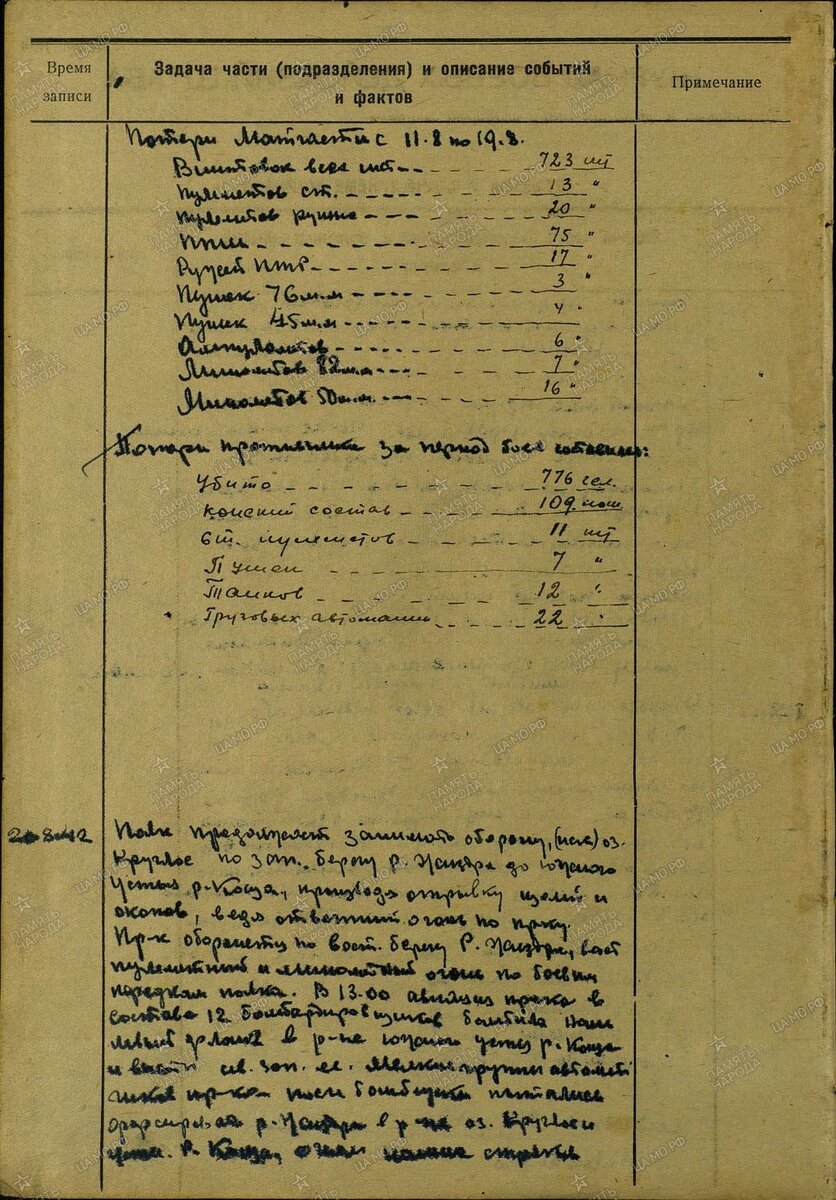 Время записи
Задача части (подразделения) и описание событий и фактов
Примечание
Потери Матчасти с 11.8 по 19.8.
Винтовок всех сист. 723 шт
Пулеметов ст. 13 "
Пулеметов ручных 20 "
ППШ 75 "
Ружей ПТР 17 "
Пушек 76 м.м 3 "
Пушек 45 м.м 4 "
Ампулометов 6 "
Минометов 82 м.м 7 "
Минометов 50 м.м. 16 "
Потери противника за период боев составил:
Убито 776 чел.
Конский состав 109 лош
Ст. пулеметов 11 шт
Пушек 7 "
Танков 12 "
Грузовых автомашин 22 "
Полк продолжает занимать оборону, (иск) оз.
Круглое по зап. берегу р. Жиздра до южного
устья р. , производя отрывку щелей и
окопов, ведя ответный огонь по пр-ку.
Пр-к обороняется по вост. берегу р. Жиздра, ведет
пулеметный и минометный огонь по боевым
порядкам полка. В 13.00 авиация пр-ка в
составе 12 бомбардировщиков бомбила наш
левый фланг в р-не южного устья р.
и сев. зап. ее. Мелкие группы автомат
чиков пр-ка после бомбежки пытались
форсировать р. Жиздра в р-не оз. Круглое и
устья р. , огнем стрелк